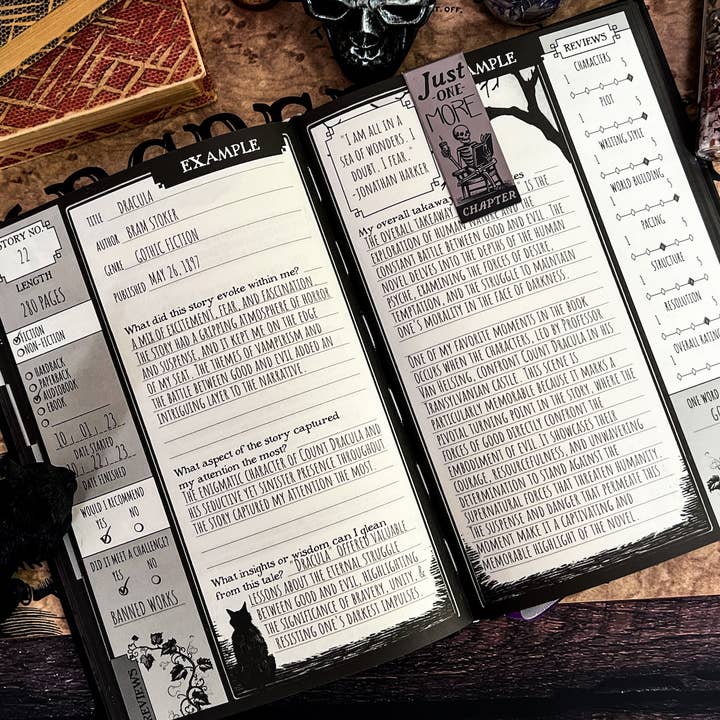 T. OFF.
EXAMPLE
STORY NO.
22
LENGTH
280 PAGES
FICTION
NON-FICTION
HARDBACK
PAPERBACK
AUDIOBOOK
EBOOK
10, 01, 23
DATE STARTED
23
DATE FINISHED
WOULD I RECOMMEND
YES NO
DID IT MEET A CHALLENGE?
YES NO
BANNED WORKS
REVIEWS
TITLE DRACULA
AUTHOR BRAM STOKER
GENRE GOTHIC FICTION
PUBLISHED MAY 26, 1897
What did this story evoke within me?
A MIX OF EXCITEMENT, FEAR, AND FASCINATION.
THE STORY HAD A GRIPPING ATMOSPHERE OF HORROR
AND SUSPENSE, AND IT KEPT ME ON THE EDGE
OF MY SEAT. THE THEMES OF VAMPIRISM AND
THE BATTLE BETWEEN GOOD AND EVIL ADDED AN
INTRIGUING LAYER TO THE NARRATIVE.
What aspect of the story captured
my attention the most?
THE ENIGMATIC CHARACTER OF COUNT DRACULA AND
HIS SEDUCTIVE YET SINISTER PRESENCE THROUGHOUT
THE STORY CAPTURED MY ATTENTION THE MOST.
What insights or wisdom can I glean
from this tale? "DRACULA" OFFERED VALUABLE
LESSONS ABOUT THE ETERNAL STRUGGLE
BETWEEN GOOD AND EVIL, HIGHLIGHTING
THE SIGNIFICANCE OF BRAVERY, UNITY, &
RESISTING ONE'S DARKEST IMPULSES.
AMPLE
"I AM ALL IN A
SEA OF WONDERS. I
DOUBT. I FEAR."
-JONATHAN HARKER
Just
-ONE-
MORE
CHAPTER
My overall takaway
THE OVERALL TAKEAWAY IS THE
EXPLORATION OF HUMAN NATURE AND THE
CONSTANT BATTLE BETWEEN GOOD AND EVIL. THE
NOVEL DELVES INTO THE DEPTHS OF THE HUMAN
PSYCHE, EXAMINING THE FORCES OF DESIRE,
TEMPTATION, AND THE STRUGGLE TO MAINTAIN
ONE'S MORALITY IN THE FACE OF DARKNESS.
ONE OF MY FAVORITE MOMENTS IN THE BOOK
OCCURS WHEN THE CHARACTERS, LED BY PROFESSOR
VAN HELSING, CONFRONT COUNT DRACULA IN HIS
TRANSYLVANIAN CASTLE. THIS SCENE IS
PARTICULARLY MEMORABLE BECAUSE IT MARKS A
PIVOTAL TURNING POINT IN THE STORY, WHERE THE
FORCES OF GOOD DIRECTLY CONFRONT THE
EMBODIMENT OF EVIL. IT SHOWCASES THEIR
COURAGE, RESOURCEFULNESS, AND UNWAVERING
DETERMINATION TO STAND AGAINST THE
SUPERNATURAL FORCES THAT THREATEN HUMANITY.
THE SUSPENSE AND DANGER THAT PERMEATE THIS
MOMENT MAKE IT A CAPTIVATING AND
MEMORABLE HIGHLIGHT OF THE NOVEL.
REVIEWS
CHARACTERS
1 5
PLOT
1 5
WRITING STYLE
1 5
WORLD BUILDING
1 5
PACING
1 5
STRUCTURE
1 5
RESOLUTION
1 5
OVERALL RATING
1
ONE WORD